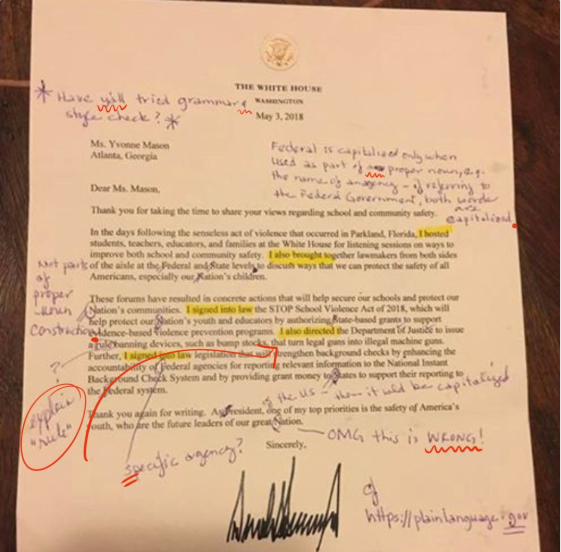 THE WHITE HOUSE
WASHINGTON
May 3, 2018
* Have yall tried grammar &
style check? *
Ms. Yvonne Mason
Atlanta, Georgia
Federal is capitalized only when
used as part of proper noun, e.g.
the name of an agency - if referring to
the Federal Government, both words
are
capitalized.
Dear Ms. Mason,
Thank you for taking the time to share your views regarding school and community safety.
In the days following the senseless act of violence that occurred in Parkland, Florida, I hosted
students, teachers, educators, and families at the White House for listening sessions on ways to
improve both school and community safety. I also brought together lawmakers from both sides
of the aisle at the Federal and State levels to discuss ways that we can protect the safety of all
Americans, especially our Nation's children.
Not part
of
proper
noun
construction
These forums have resulted in concrete actions that will help secure our schools and protect our
Nation's communities. I signed into law the STOP School Violence Act of 2018, which will
help protect our Nation's youth and educators by authorizing State-based grants to support
evidence-based violence prevention programs. I also directed the Department of Justice to issue
a rule banning devices, such as bump stocks, that turn legal guns into illegal machine guns.
Further, I signed into law legislation that will strengthen background checks by enhancing the
accountability of Federal agencies for reporting relevant information to the National Instant
Background Check System and by providing grant money to States to support their reporting to
the Federal system.
?
explain
"rule"
if the US - then it would be capitalized
Thank you again for writing. As President, one of my top priorities is the safety of America's
youth, who are the future leaders of our great Nation.
OMG this is WRONG!
Sincerely,
specific agency?
https://plainlanguage.gov